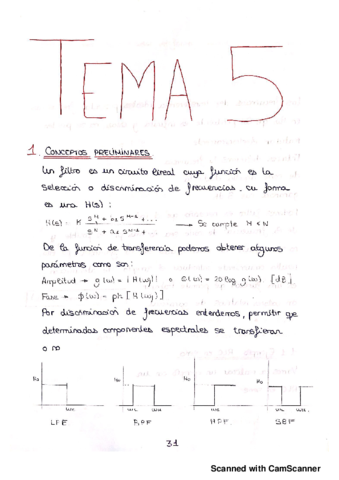 TEMA 5
1. CONCEPTOS PRELIMINARES
Un filtro es un circuito lineal cuya función es la
selección o discriminación de frecuencias. su forma
es una H(s):
H(s) = K (s^M + a1 s^M-1 + ...) / (s^N + a2 s^N-1 + ...) → Se cumple M < N
De la función de transferencia podemos obtener algunos
parámetros como son:
Amplitud → g(ω) = |H(ωj)| o G(ω) = 20 log g(ω) [dB]
Fase → ϕ(ω) = ph[H(ωj)]
Por discriminación de frecuencias entendemos, permitir que
determinadas componentes espectrales se transfieran
o no
Ho Ho Ho Ho
LFE BPF HPF SBF
31
Scanned with CamScanner